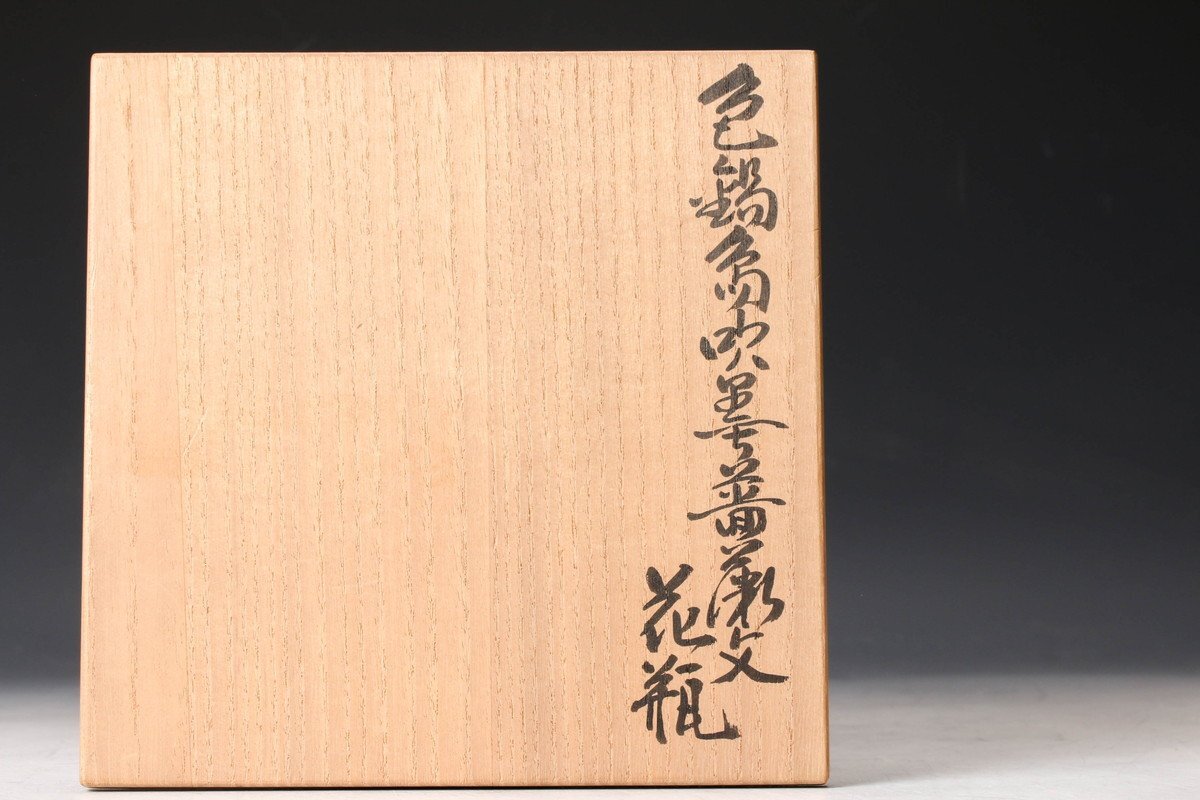 色鍋島吹墨薔薇文
花瓶